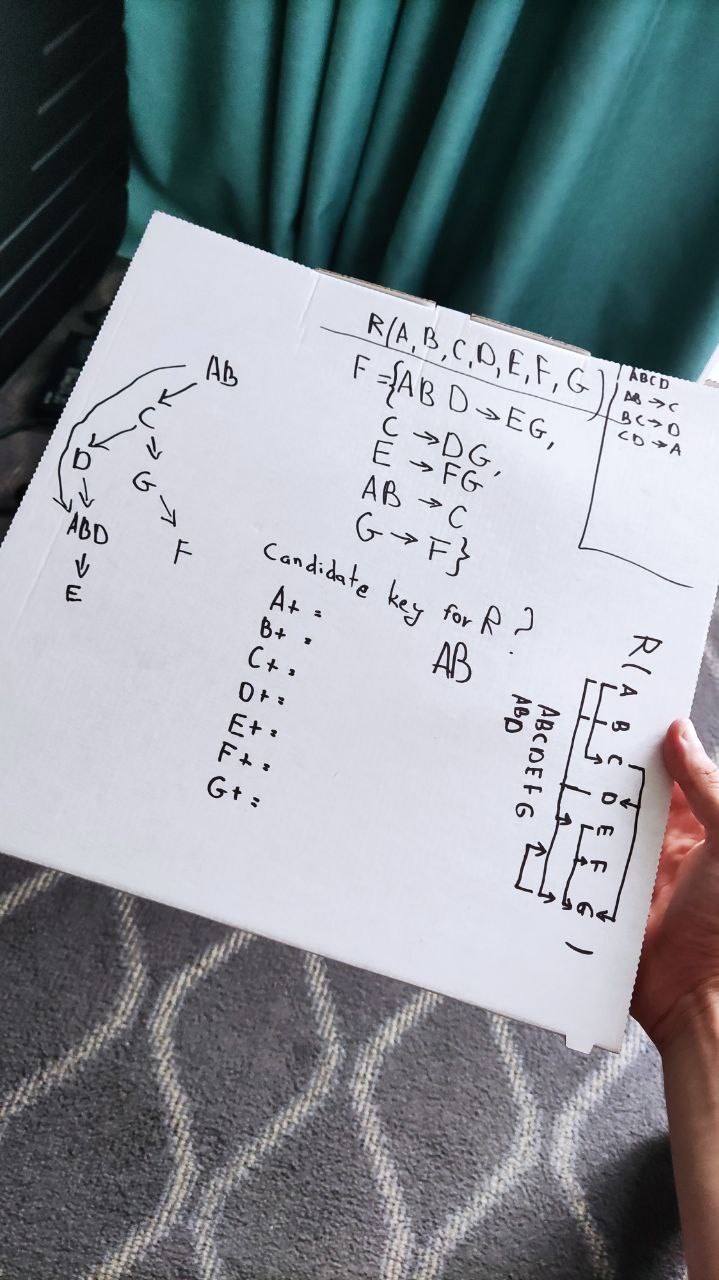 R(A,B,C,D,E,F,G)
F={ABD→EG,
C→DG,
E→FG
AB→C
G→F}
ABCD
AB→C
BC→D
CD→A
AB
C
D
G
ABD
F
E
Candidate key for R?
AB
A+=
B+=
C+=
D+=
E+=
F+=
G+=
R(A B C D E F G)
ABCDEFG
ABD